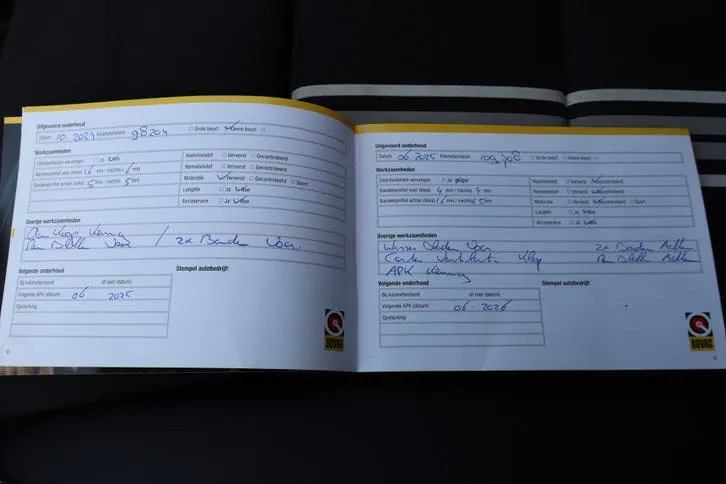 Uitgevoerd onderhoud
Datum 10 2024 Kilometerstand 98204 Grote beurt Kleine beurt
Werkzaamheden
Distributieriem vervangen Ja Nee
Bandenprofiel voor (links) 6 mm / (rechts) 6 mm
Bandenprofiel achter (links) 5 mm / (rechts) 5 mm
Koelvloeistof Ververst Gecontroleerd
Remvloeistof Ververst Gecontroleerd
Motorolie Ververst Gecontroleerd Soort
Longlife Ja Nee
Aircoservice Ja Nee
Overige werkzaamheden
/ 2x Banden Voor
Volgende onderhoud
Bij kilometerstand of voor (datum)
Volgende APK (datum) 06 2025
Opmerking
Stempel autobedrijf:
BOVAG
Uitgevoerd onderhoud
Datum 06 2025 Kilometerstand 109 908 Grote beurt Kleine beurt
Werkzaamheden
Distributieriem vervangen Ja Nee
Bandenprofiel voor (links) 4 mm / (rechts) 4 mm
Bandenprofiel achter (links) 6 mm / (rechts) 5 mm
Koelvloeistof Ververst Gecontroleerd
Remvloeistof Ververst Gecontroleerd
Motorolie Ververst Gecontroleerd Soort
Longlife Ja Nee
Aircoservice Ja Nee
Overige werkzaamheden
Wisser Bladen Voor 2x Banden Achter
Carter Ventilatie Klep Achter
APK Keuring
Volgende onderhoud
Bij kilometerstand of voor (datum)
Volgende APK (datum) 06-2026
Opmerking
Stempel autobedrijf:
BOVAG